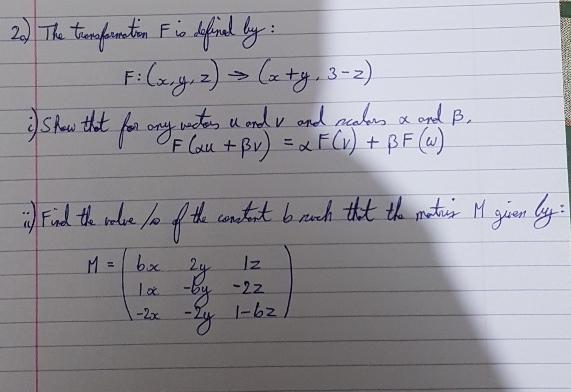 2a) The transformation F is defined by:
F: (x, y, z) → (x+y, 3-z)
i) Show that for any vectors u and v and scalars α and β,
F(αu + βv) = αF(v) + βF(w)
ii) Find the value/s of the constant b such that the matrix M given by:
M = ( bx 2y 1z
1x -by -2z
-2x -2y 1-bz )